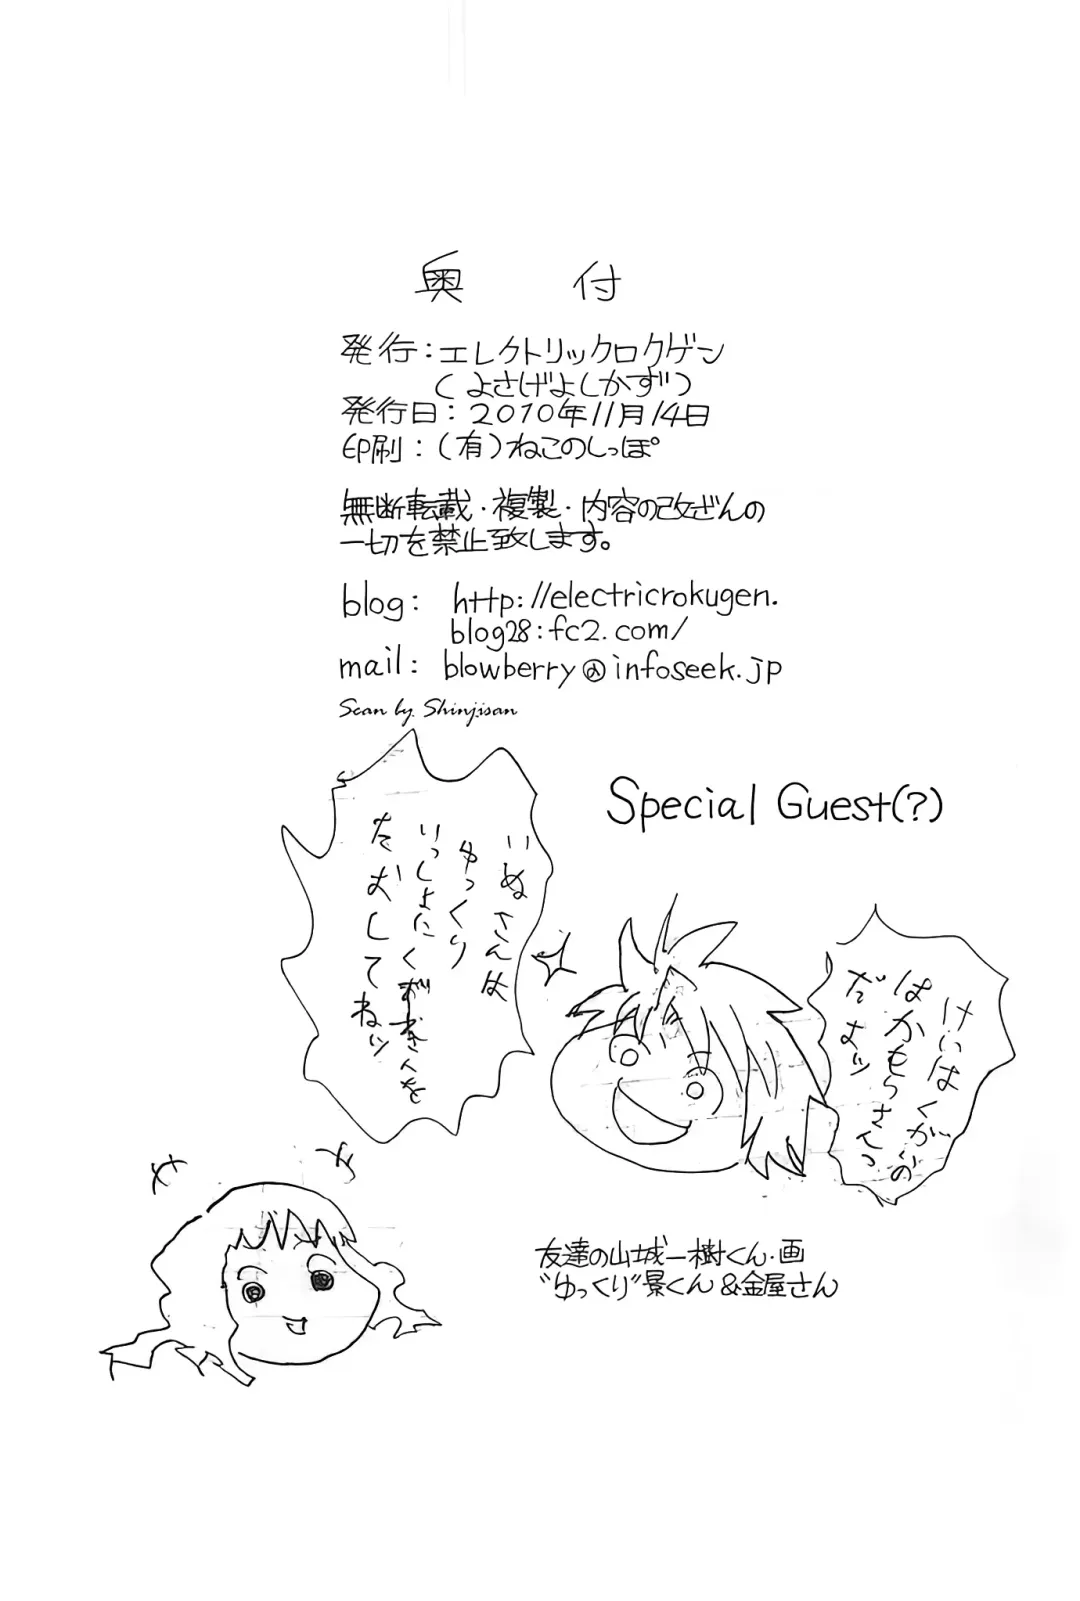 奥付
発行：エレクトリックロクゲン
(よさげよしかず)
発行日：2010年11月14日
印刷：(有)ねこのしっぽ
無断転載・複製・内容の改ざんの
一切を禁止致します。
blog: http://electricrokugen.
blog28.fc2.com/
mail: blowberry@infoseek.jp
Scan by Shinjisan
Special Guest(?)
けいはくがいの
ばかもらさんっ
だよッ
いぬさんは
ゆっくり
いっしょに
たおしてねッ
友達の山城一樹くん・画
"ゆっくり"景くん&金屋さん